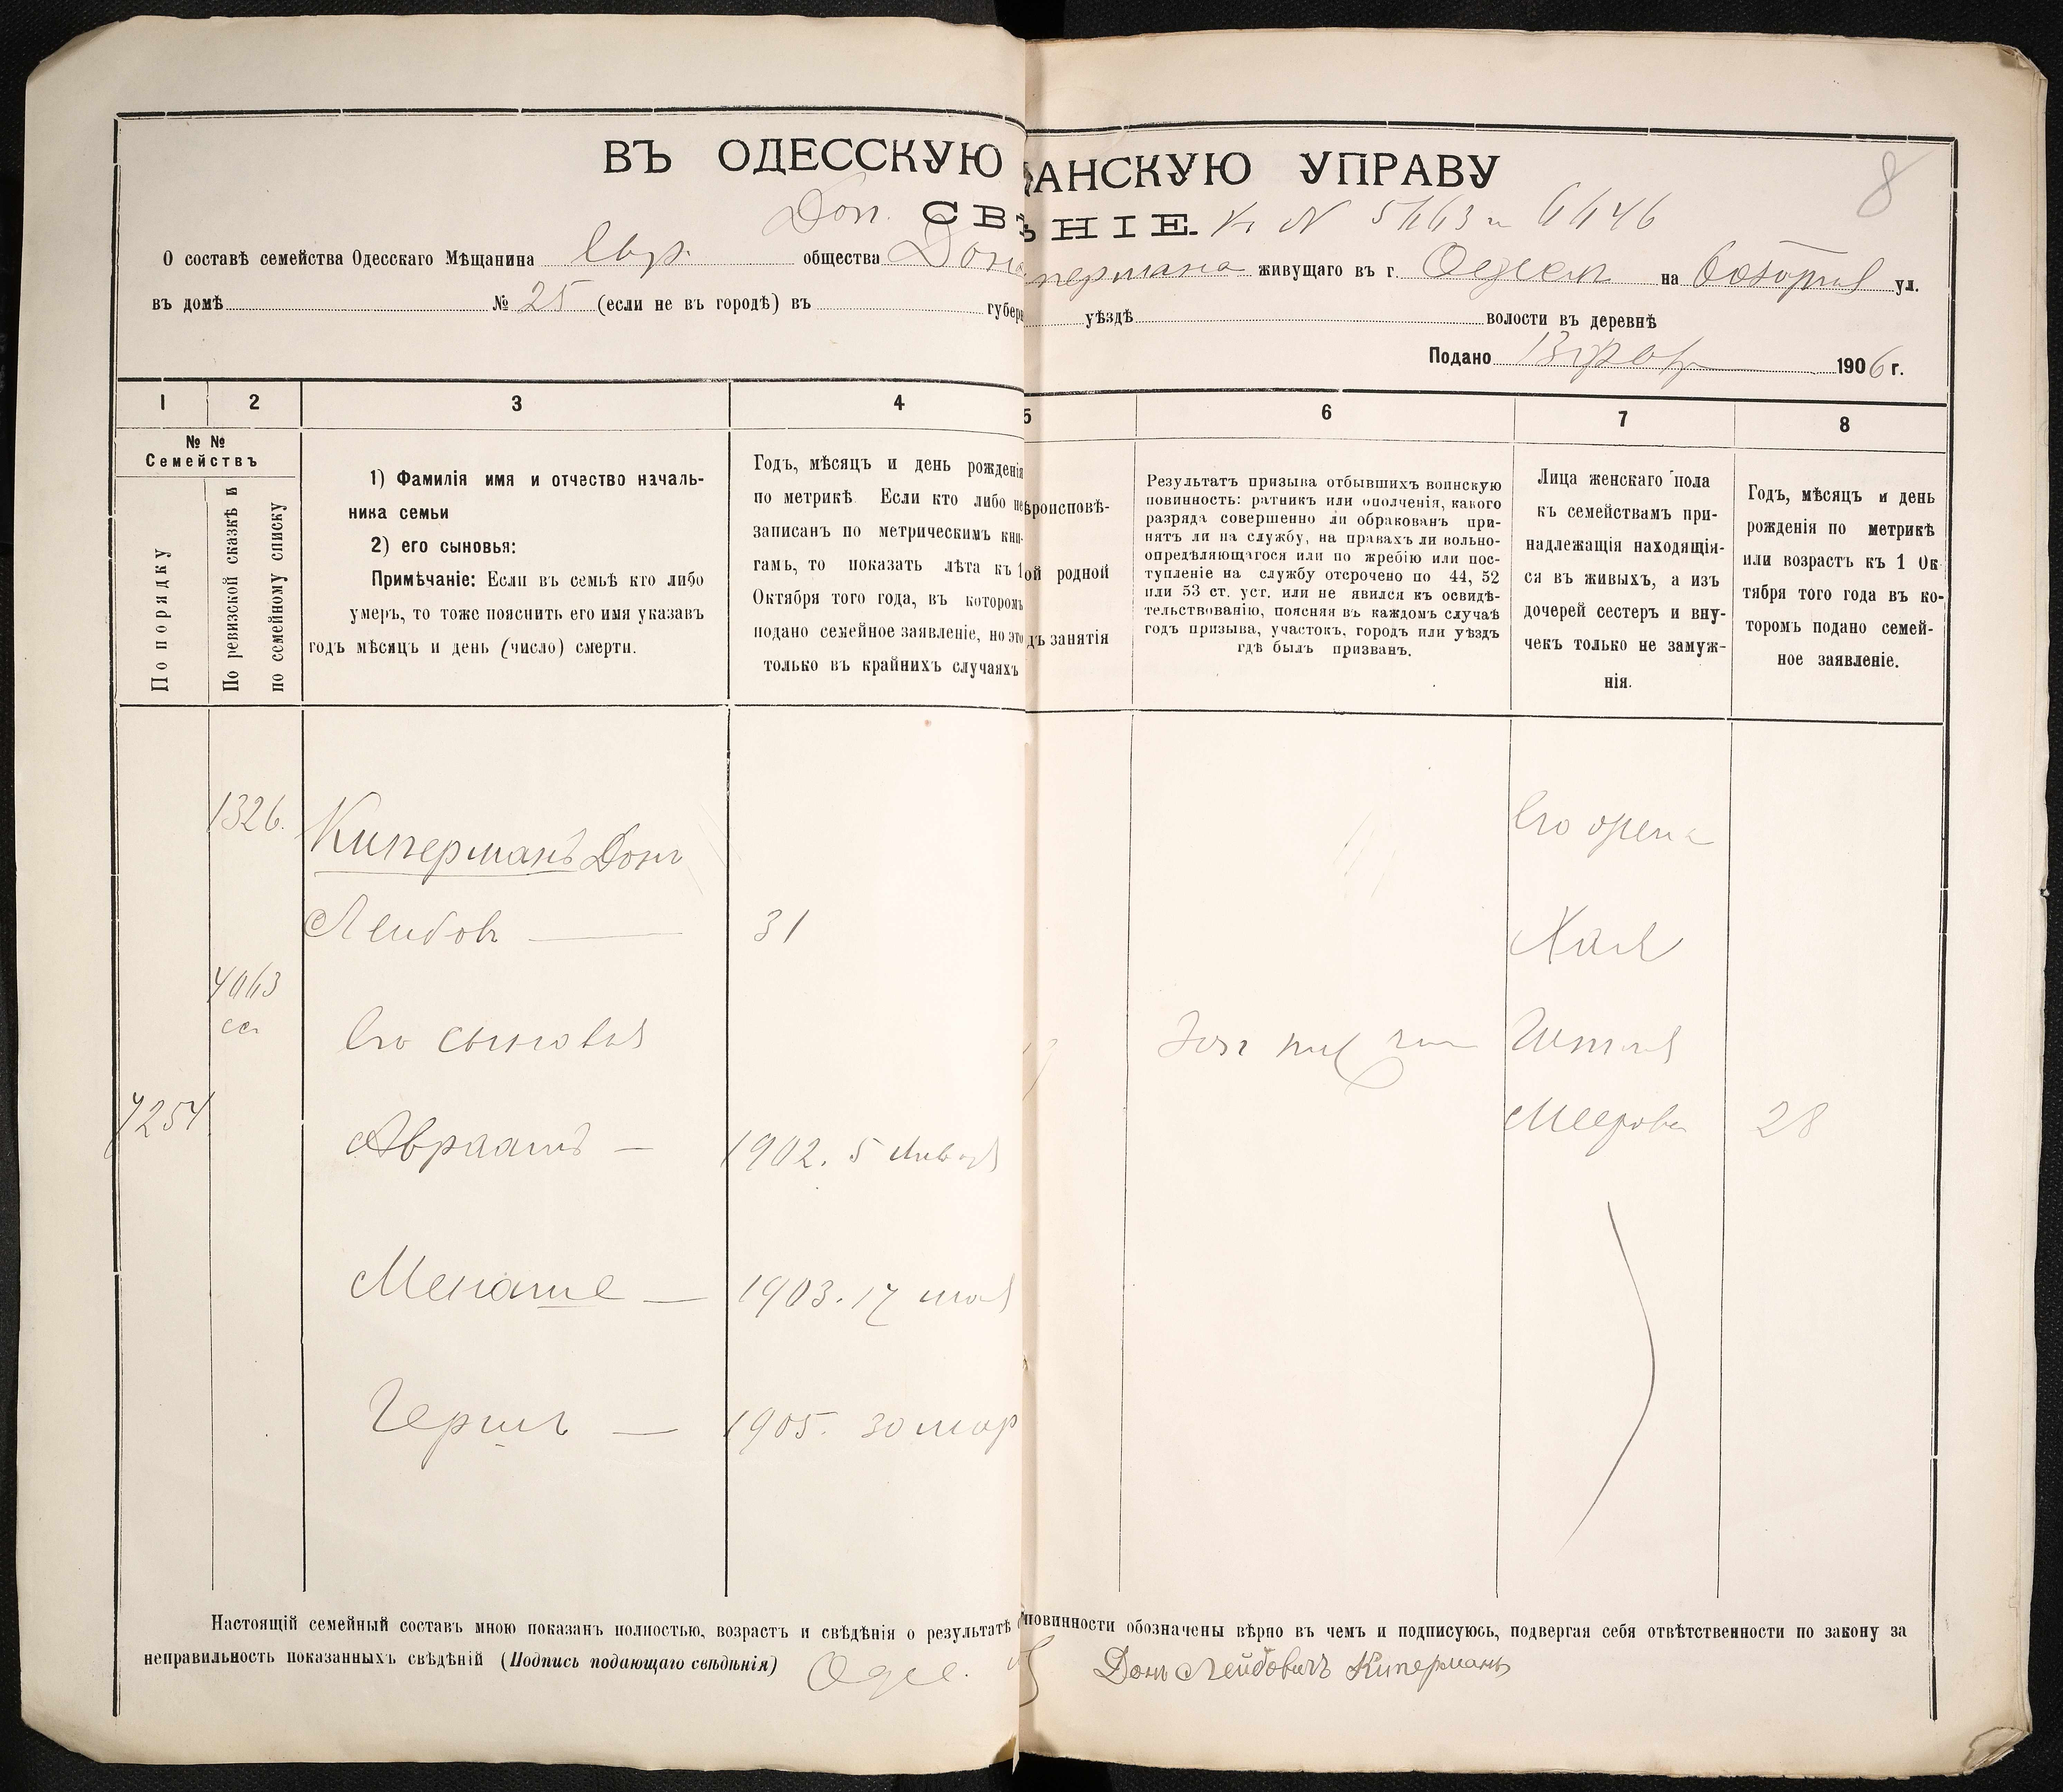 8
ВЪ ОДЕССКУЮ АНСКУЮ УПРАВУ
Доп. СВ НІЕ. К N
О составѣ семейства Одесскаго Мѣщанина Евр. общества Дон пермана живущаго въ г. Одессѣ на ул.
въ домѣ № 25 (если не въ городѣ) въ губер уѣздѣ волости въ деревнѣ
Подано 13 1906 г.
1 2 3 4 5 6 7 8
№ №
Семействъ
По порядку
По ревизской сказкѣ и
по семейному списку
1) Фамилія имя и отчество началь-
ника семьи
2) его сыновья:
Примѣчаніе: Если въ семьѣ кто либо
умеръ, то тоже пояснить его имя указавъ
годъ мѣсяцъ и день (число) смерти.
Годъ, мѣсяцъ и день рожденія
по метрикѣ Если кто либо не
записанъ по метрическимъ кни-
гамъ, то показать лѣта къ 1
Октября того года, въ которомъ
подано семейное заявленіе, но это
только въ крайнихъ случаяхъ
ѣроисповѣ-
ой родной
дъ занятія
Результатъ призыва отбывшихъ воинскую
повинность: ратникъ или ополченія, какого
разряда совершенно ли обракованъ при-
нятъ ли на службу, на правахъ ли вольно-
опредѣляющагося или по жребію или пос-
тупленіе на службу отсрочено по 44, 52
или 53 ст. уст. или не явился къ освидѣ-
тельствованію, поясняя въ каждомъ случаѣ
годъ призыва, участокъ, городъ или уѣздъ
гдѣ былъ призванъ.
Лица женскаго пола
къ семействамъ при-
надлежащія находящія-
ся въ живыхъ, а изъ
дочерей сестеръ и вну-
чекъ только не замуж-
нія.
Годъ, мѣсяцъ и день
рожденія по метрикѣ
или возрастъ къ 1 Ок-
тября того года въ ко-
торомъ подано семей-
ное заявленіе.
1326. Киперманъ Донъ
Его жена
Лейбовъ 31
Хая
Его сыновья
Меерова 28
7254
Авраамъ — 1902. 5 Января
Менаше — 1903. 17 мая
Гершъ — 1905. 30 мар
Настоящій семейный составъ мною показанъ полностью, возрастъ и свѣдѣнія о результатѣ повинности обозначены вѣрно въ чемъ и подписуюсь, подвергая себя отвѣтственности по закону за
неправильность показанныхъ свѣдѣній (Подпись подающаго свѣдѣнія) Одес. Донъ Лейбовичъ Киперманъ